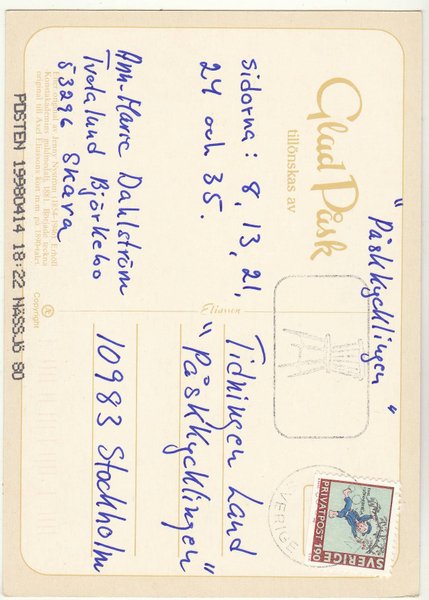 Glad Påsk
tillönskas av
"Påskkycklingen"
sidorna: 8, 13, 21,
24 och 35.
Ann-Marie Dahlström
Tvetalund Björkebo
53296 Skara
Eliasson
Tidningen Land
"Påskkycklingen"
10983 Stockholm
SVERIGE
PRIVATPOST 190
VERIGE
POSTEN 19980414 18:22 NÄSSJÖ 80
Copyright